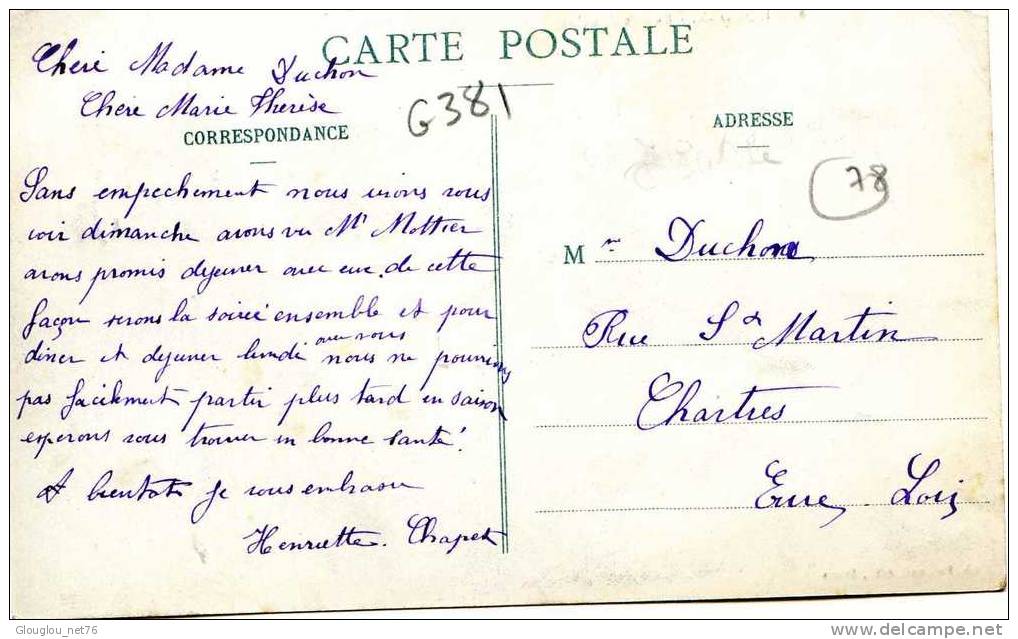 CARTE POSTALE
Chere Madame Duchon
Chere Marie Thérèse
G381
CORRESPONDANCE
Sans empechement nous irions vous
voir dimanche avons vu Mr Mottier
avons promis dejeuner avec eux de cette
façon serons la soireé ensemble et pour
diner et dejeuner lundi avec vous nous ne pourrions
pas facilement partir plus tard en saison
esperons vous trouver en bonne santé!
A bientot je vous embrasse
Henriette. Chapet
ADRESSE
78
Mme Duchon
Rue St Martin
Chartres
Eure Loir
Glouglou_net76
delcampe.net